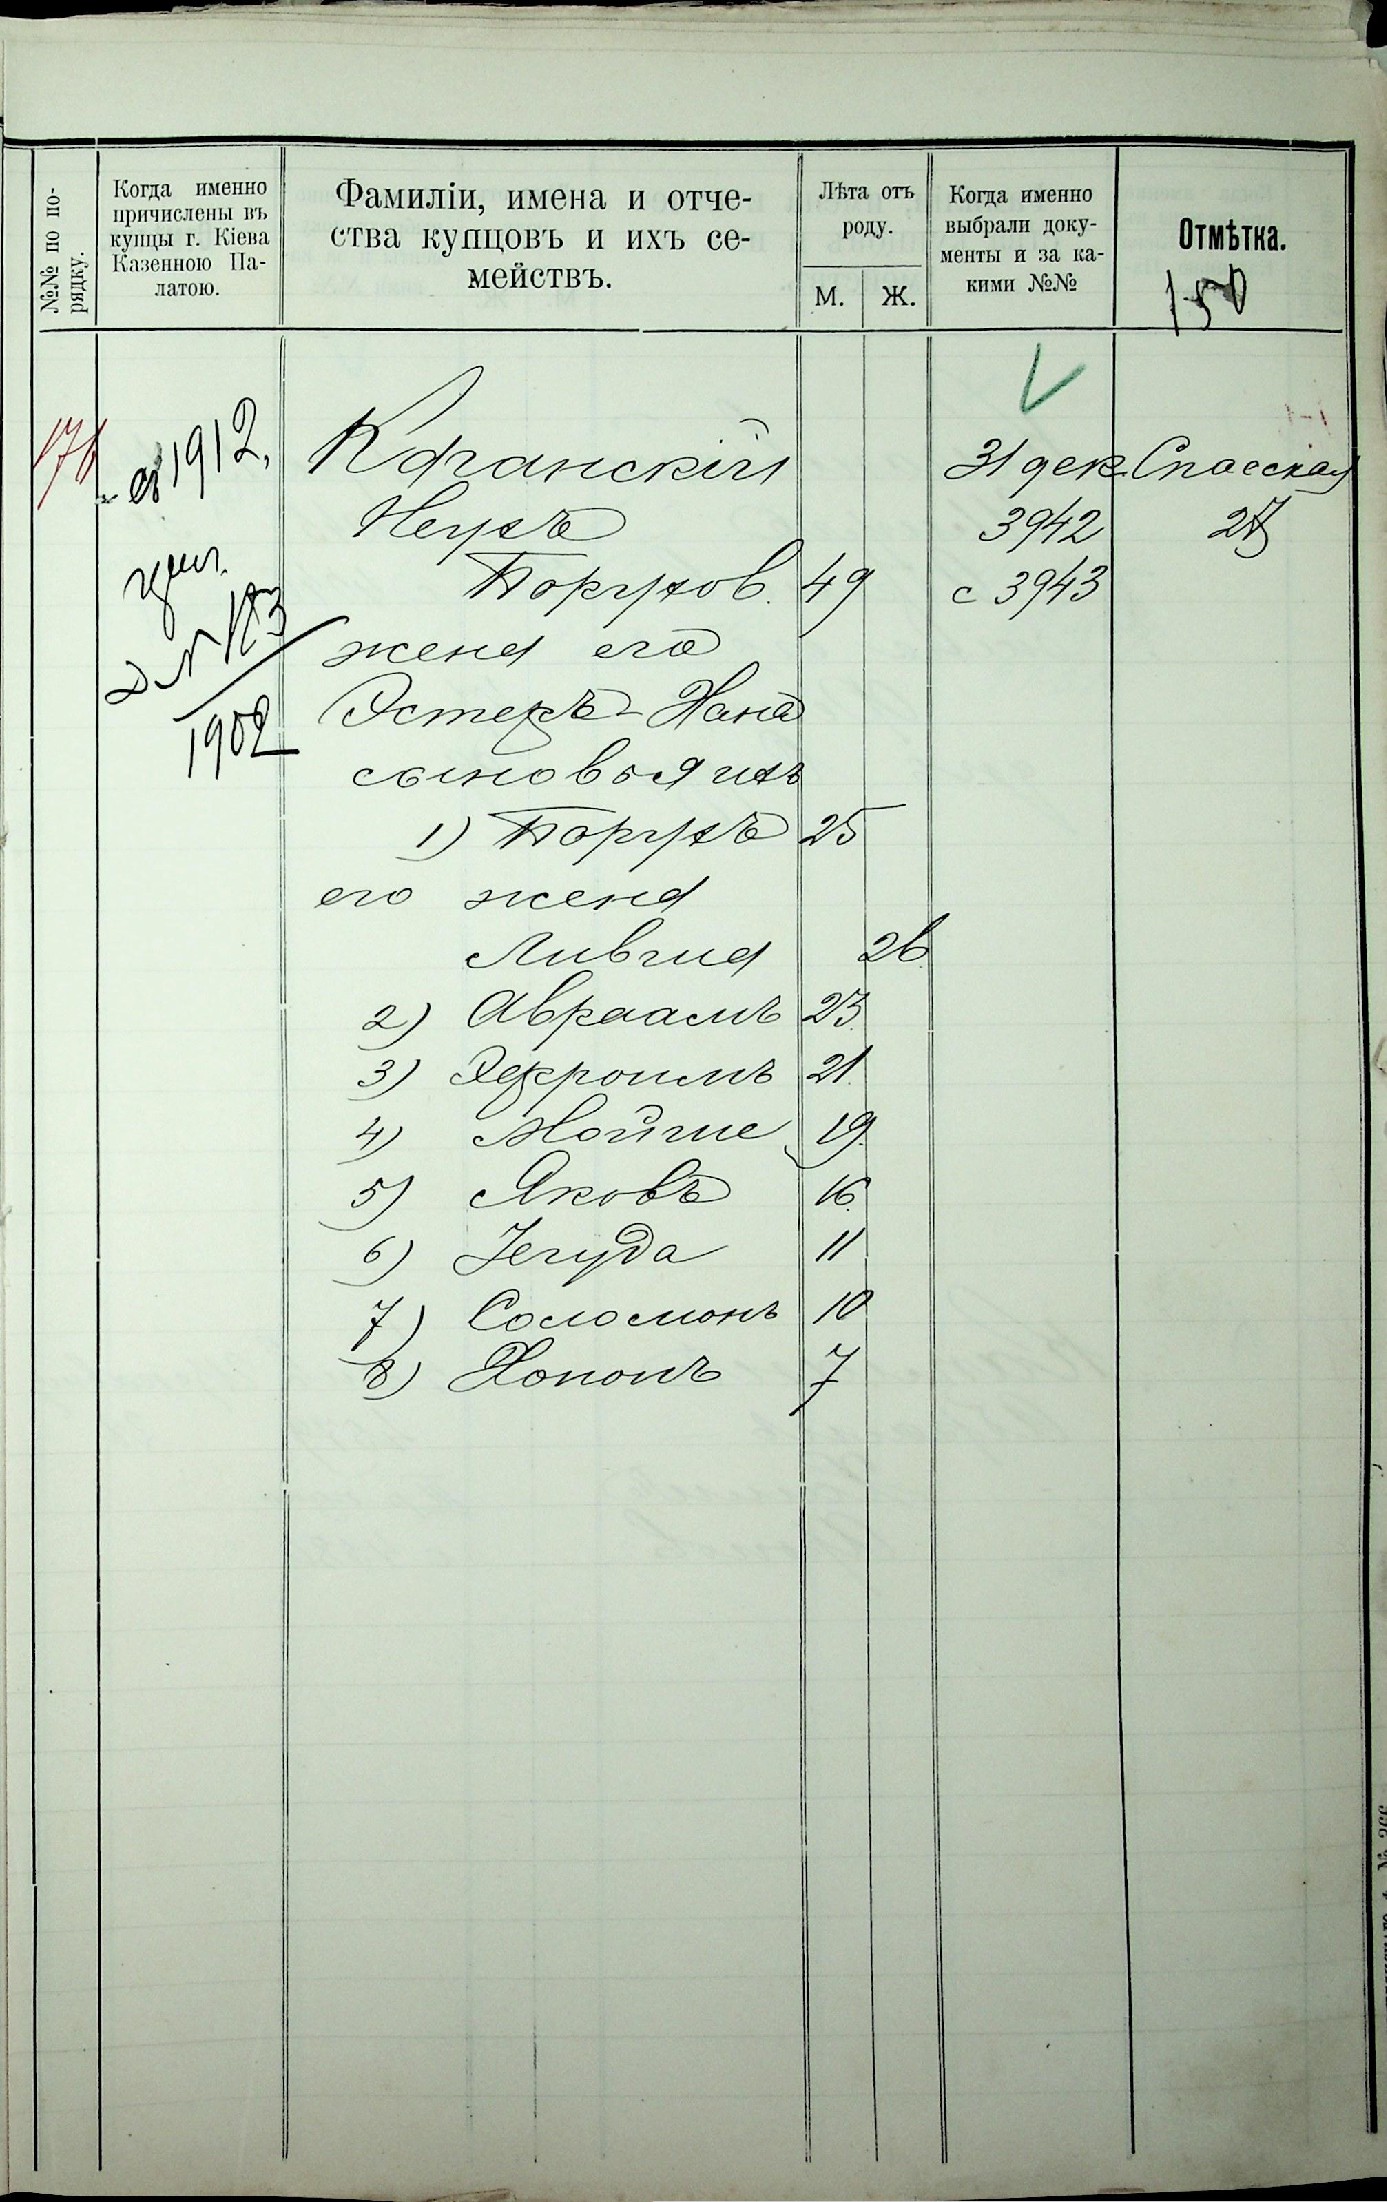 №№ по по-
рядку.
Когда именно
причислены въ
купцы г. Кіева
Казенною Па-
латою.
Фамиліи, имена и отче-
ства купцовъ и ихъ се-
мействъ.
Лѣта отъ
роду.
М. Ж.
Когда именно
выбрали доку-
менты и за ка-
кими №№
Отмѣтка.
150
176 1912, Каганскій 31 дек. Спасская
3942
Боруков. 49 с 3943
жена его
№ 183
1902
Эстеръ-Хана
сыновья ихъ
1) Борухъ 25
его жена
26
2) Авраамъ 23
3) Эфроимъ 21
4) Мойше 19
5) Яковъ 16
6) Іегуда 11
7) Соломонъ 10
8) Хононъ 7